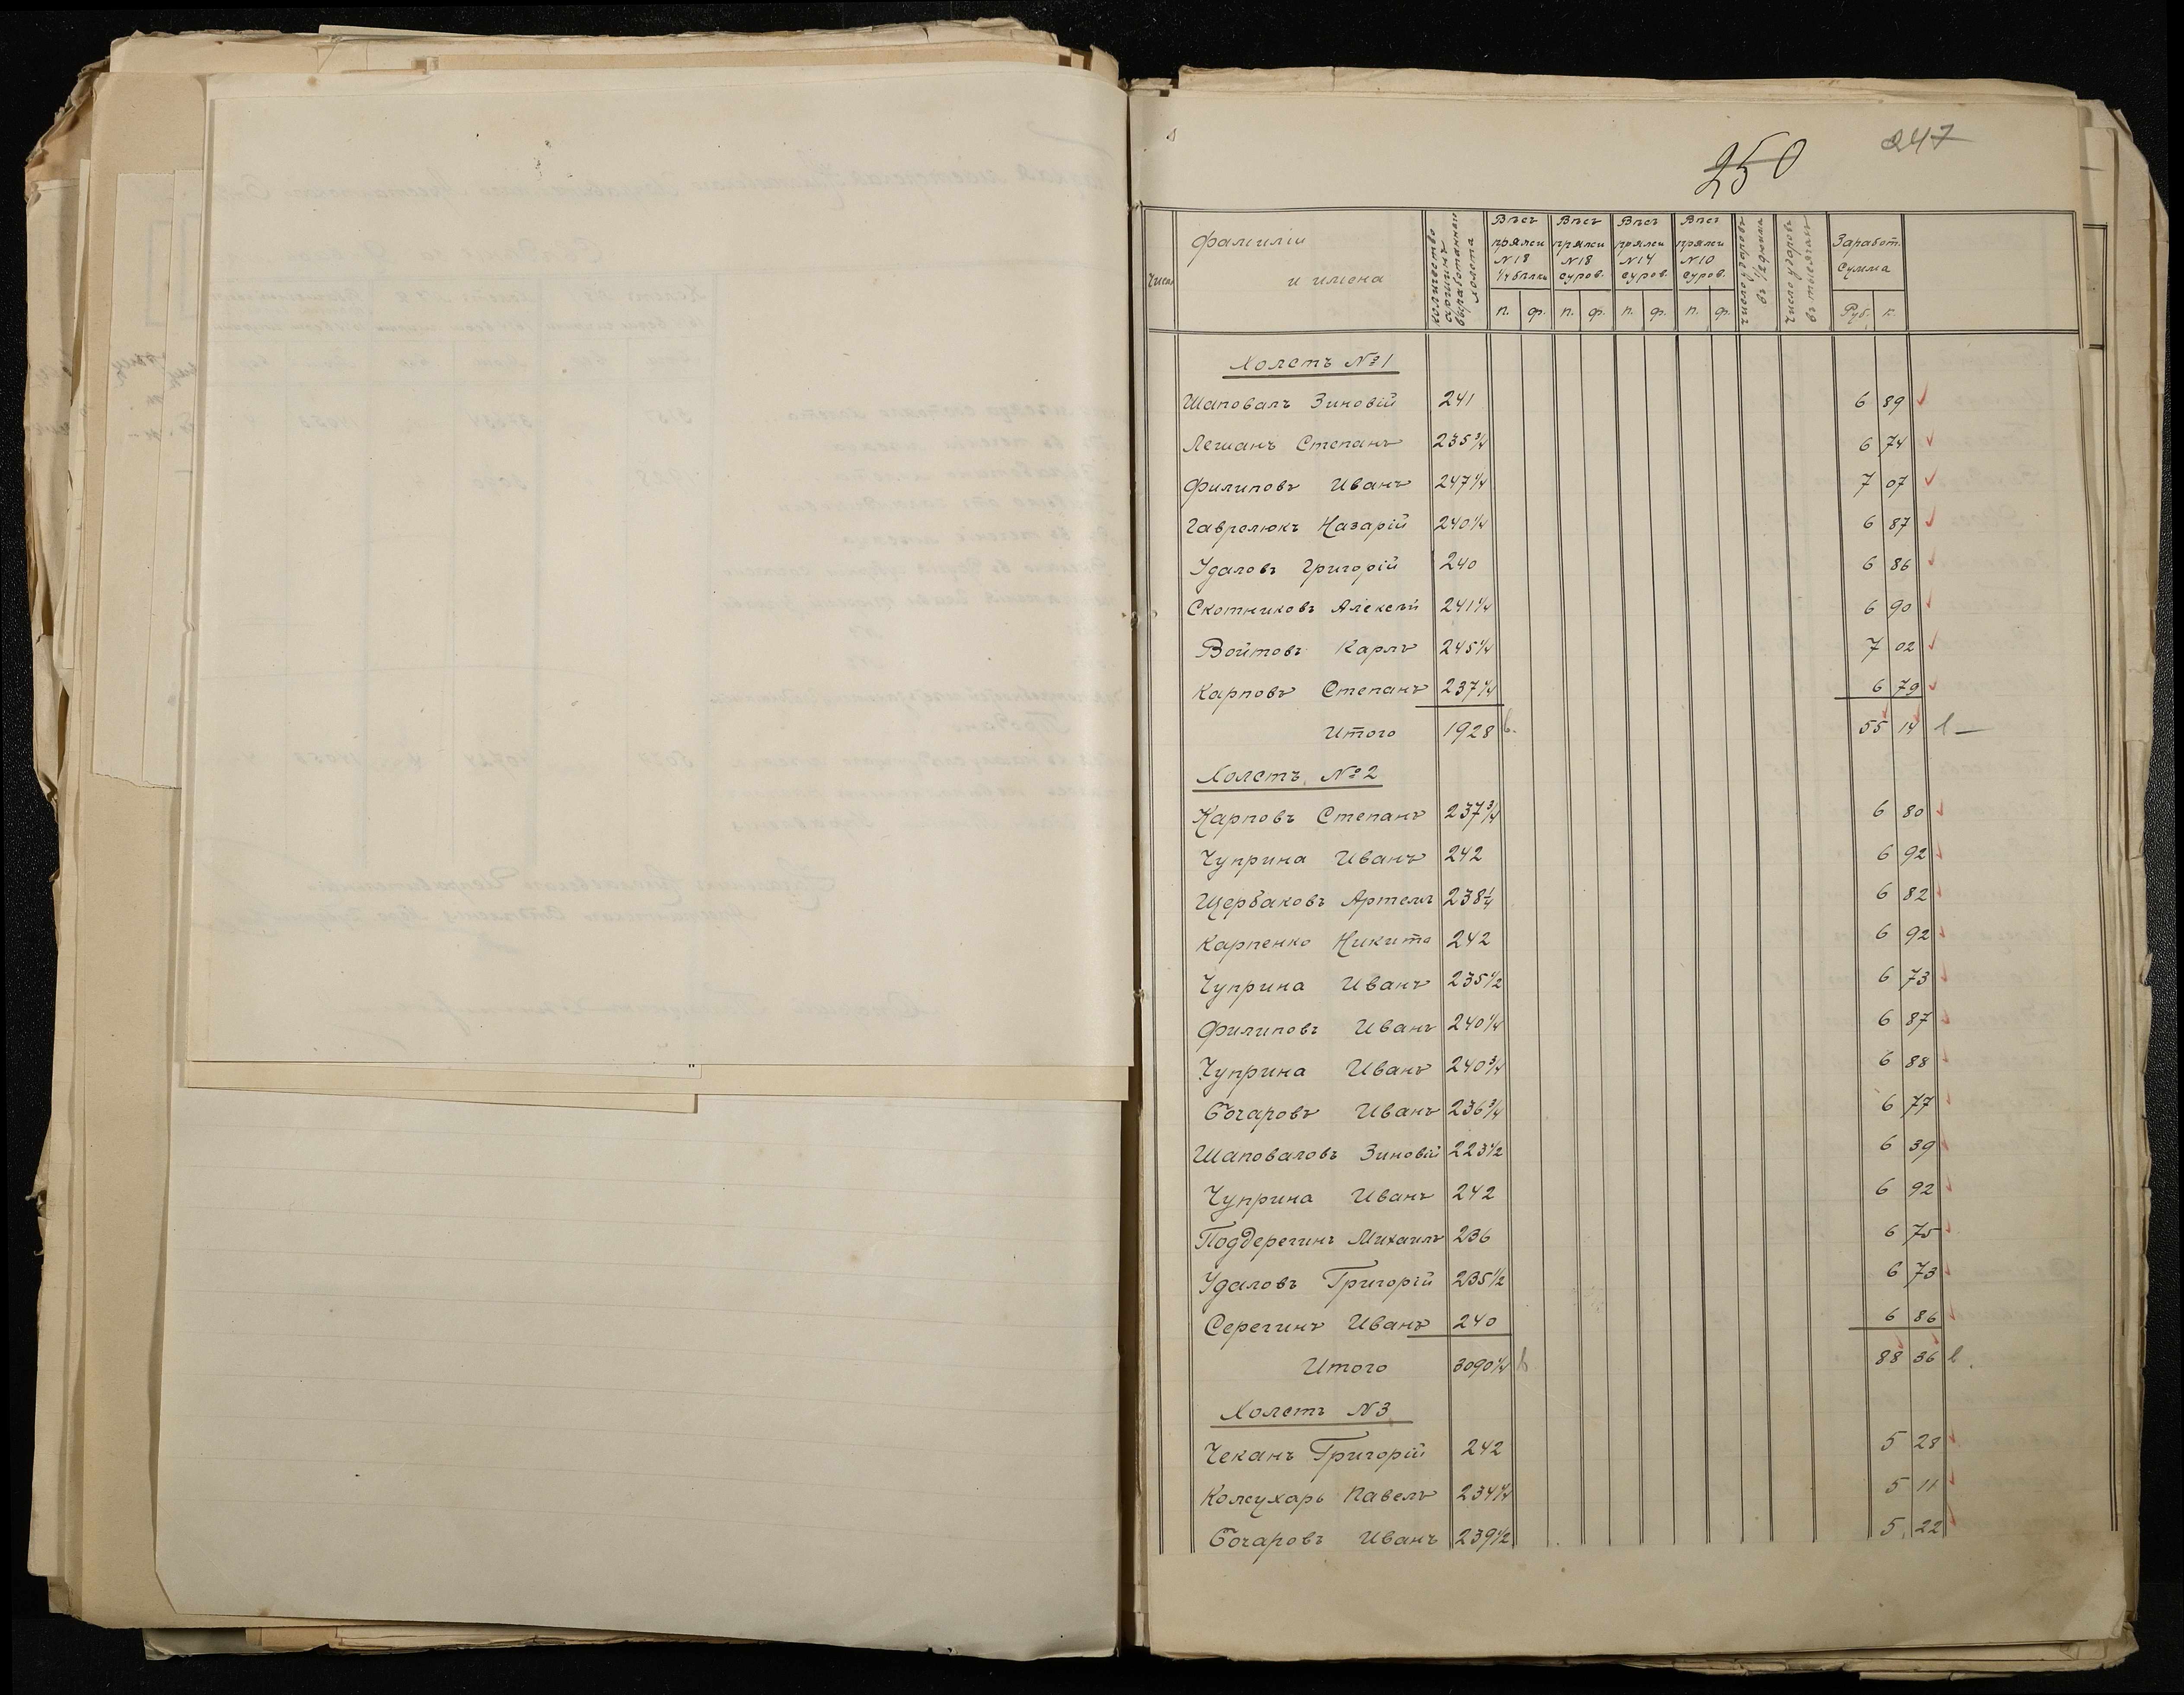 247
250
Число
Фамиліи
и имена
Количество
аршинъ
выработаннаго
холста
Вѣсъ
пряжи
№18
1/4 бѣлки
Вѣсъ
пряжи
№18
суров.
Вѣсъ
пряжи
№14
суров.
Вѣсъ
пряжи
№10
суров.
Число ударовъ
въ 1/2 дюйма
Число ударовъ
въ тысячахъ
Заработ.
сумма
п. ф. п. ф. п. ф. п. ф. Руб. к.
Холстъ №1
Шаповалъ Зиновій 241 6 89
Легианъ Степанъ 235 3/4 6 74
Филиповъ Иванъ 247 1/4 7 07
Гаврелюкъ Назарій 240 1/4 6 87
Удаловъ Григорій 240 6 86
Скотниковъ Алексѣй 241 1/4 6 90
Войтовъ Карлъ 245 1/4 7 02
Карповъ Степанъ 237 1/4 6 79
Итого 1928 55 14
Холстъ №2
Карповъ Степанъ 237 3/4 6 80
Чуприна Иванъ 242 6 92
Щербаковъ Артемъ 238 1/4 6 82
Карпенко Никита 242 6 92
Чуприна Иванъ 235 1/2 6 73
Филиповъ Иванъ 240 1/4 6 87
Чуприна Иванъ 240 3/4 6 88
Бочаровъ Иванъ 236 3/4 6 77
Шаповаловъ Зиновій 223 1/2 6 39
Чуприна Иванъ 242 6 92
Поддерегинъ Михаилъ 236 6 75
Удаловъ Григорій 235 1/2 6 73
Серегинъ Иванъ 240 6 86
Итого 3090 1/4 88 36
Холстъ №3
Чеканъ Григорій 242 5 28
Кожухарь Павелъ 234 1/4 5 11
Бочаровъ Иванъ 239 1/2 5 22